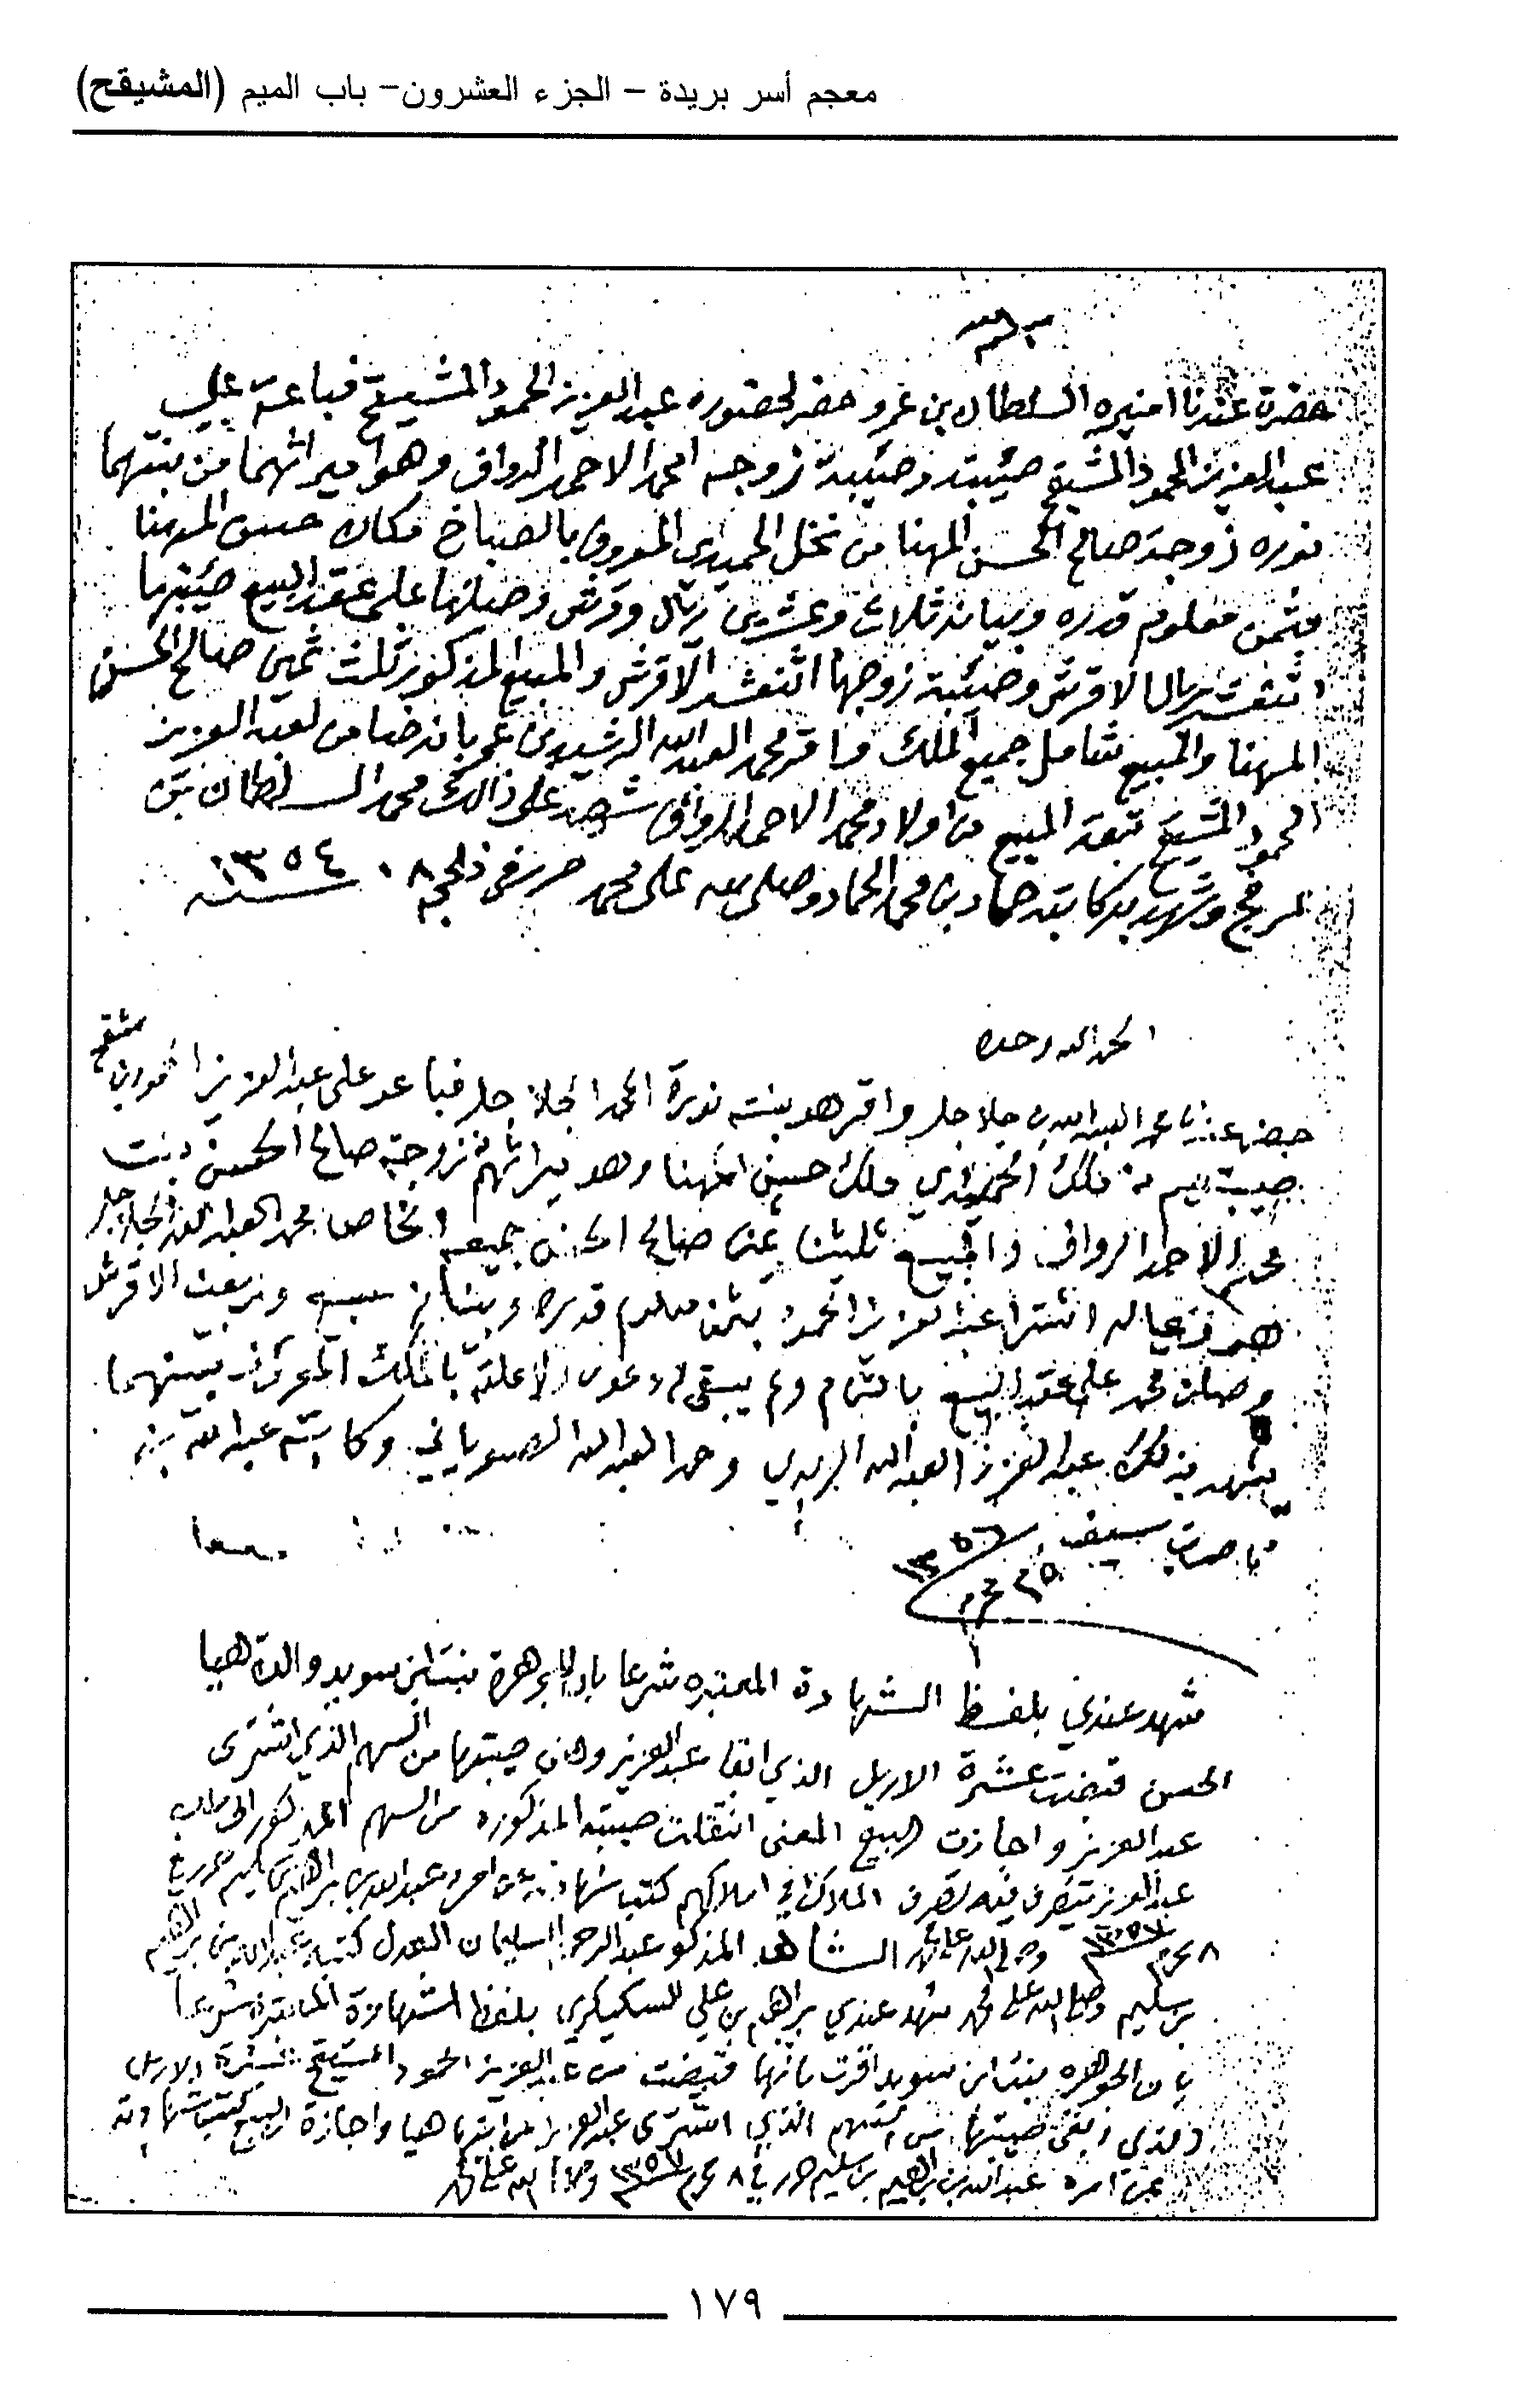 معجم أسر بريدة – الجزء العشرون– باب الميم (المشيقح)
حضرت عندنا منيره السلطان بن عمرو حضر لحضوره عبدالعزيز الحمود المشيقح فباعة على
عبدالعزيز الحمود المشيقح صيبته وصيبة زوجه محمد الاحمد الرواق وهو ميراثهما من بنتهما
نوره زوجة صالح الحسن المهنا من نخل الحميدي المعروف بالصباخ مكان حسن المهنا
بثمن معلوم قدره وبيانه ثلاث وعشرين ريال وقرش وصلنها على عقد البيع صيبتها
ريال الا قرش وصيبة زوجها اثنعشر الا قرش والمبيع المذكور ثلث ثمين صالح الحسن
المهنا والمبيع شامل جميع الملك واقر محمد العبدالله الرشيد بن عمرو بانه ضامن لعبد العزيز
الحمود المشيقح تبعة المبيع من اولاد محمد الاحمد الرواق شهد على ذالك محمد السلطان بن
وشهد به كاتبه حماد بن محمد الحماد وصلى الله على محمد حرر في ذلحجه ٨ سنة ١٣٥٤
الحمد لله وحده
حضر عندنا محمد العبدالله بن جلاجل واقر هو بنته نورة المحمد الجلاجل فباعو على عبدالعزيز الحمود بن مشيقح
من ملك الحميدي ملك حسن المهنا وهو ميراثهم من زوجة صالح الحسن بنت
محمد الاحمد الرواق والمبيع ثلث ثمن صالح الحسن جميعه الخاص محمد العبدالله الجلاجل
هو وعياله اشترا عبدالعزيز الحمود بثمن معلوم قدره وبيانه سبعه وربعت الا قرش
وصلت محمد على عقد البيع بالتمام ولم يبقى له دعوى ولا علقة بالملك المعروف بينهما
يشهد بذلك عبدالعزيز العبدالله البريدي وحمد العبدالله الصوياني وكاتبه عبدالله بن
ناصر بن سيف ١٣٥٦
٢٥ محرم
شهد عندي بلفظ الشهادة المعتبره شرعا بان الجوهرة بنت ابن سويد والدة هيا
الحسن قبضت عشرة الاريل الذي ابقا عبدالعزيز وهن صيبتها من السهم الذي اشترى
عبدالعزيز واجازت البيع المعنى انتقلت صيبته المذكوره من السهم المذكور الى ملك
عبدالعزيز يتصرف فيه تصرف الملاك في املاكهم كتب شهادته عن امره عبدالله بن ابراهيم بن سليم حرر في
٨ محرم ١٣٥٧ وصلى الله على محمد الشاهد المذكور عبدالرحمن السليمان العدل كتبه عبدالله بن ابراهيم
بن سليم وصلى الله على محمد شهد عندي براهيم بن علي السكيكري بلفظ الشهادة المعتبرة شرعا
بان الجوهره بنت ابن سويد اقرت بانها قبضت من عبدالعزيز الحمود المشيقح عشرة الاريل
الذي ابقى صيبتها من السهم الذي اشترى عبدالعزيز من ابنتها هيا واجازة البيع كتب شهادته
عن امره عبدالله بن ابراهيم بن سليم حرر في ٨ محرم ١٣٥٧ وصلى الله على محمد
١٧٩